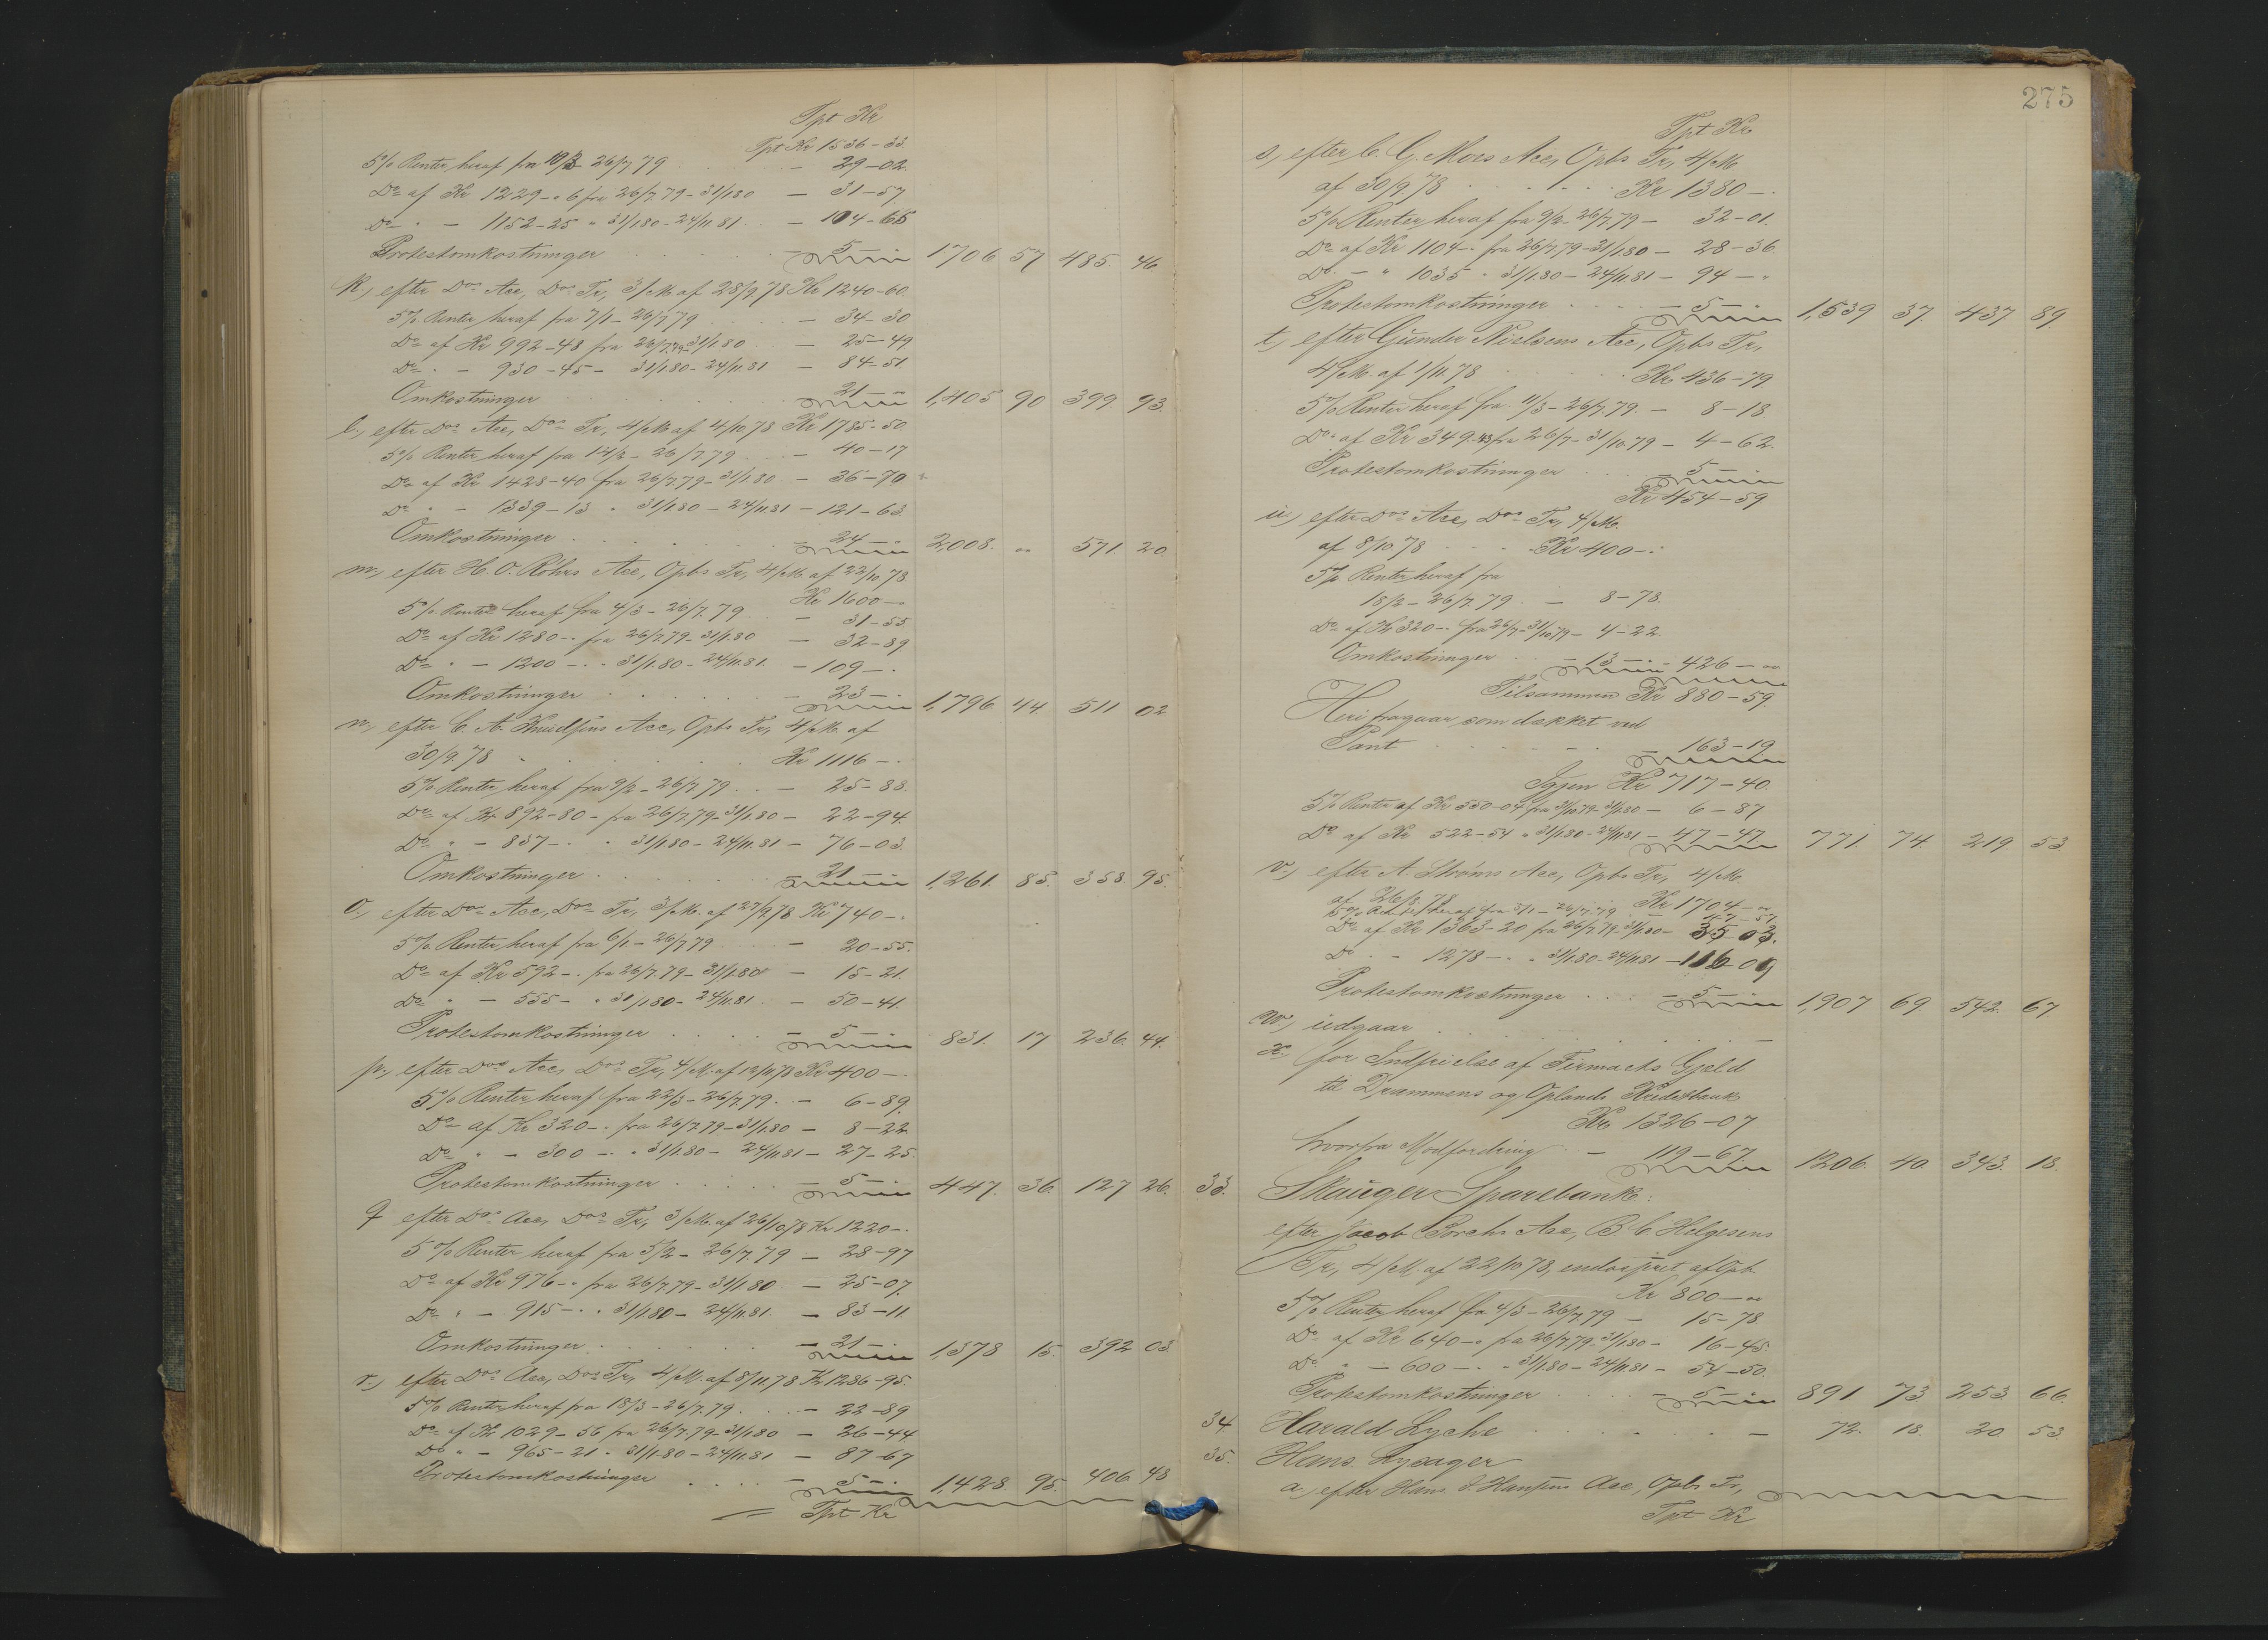 Tpt Kr
Tpt Kr 1536-33.
5% Renter heraf fra 10/3- 26/7 79 - 29-02.
Do af Kr 1229-06 fra 26/7.79-31/1.80 - 31-57
Do " - 1152-25 " 31/1.80-24/11.81 - 104-65
Protestomkostninger - 5-" 1706 57 485. 46.
k., efter Dos Acc, Dos Tr, 3/M. af 28/9 78 Kr 1240-60.
5% Renter heraf fra 7/1-26/7 79 - 34-30
Do af Kr 992-48 fra 26/7.79-31/1.80 - 25-49
Do " - 930-45- 31/1.80-24/11.81 - 84-51
Omkostninger 21-" 1,405 90 399 93.
l., efter Dos Acc, Dos Tr, 4/M. af 4/10 78 Kr 1785-50
5% Renter heraf fra 14/2-26/7.79 - 40-17
Do af Kr 1428-40 fra 26/7.79-31/1.80 - 36-70
Do " - 1339-13 " 31/1.80-24/11.81 - 121-63.
Omkostninger - 24-" 2008. " 571. 20.
m., efter H. O. Röhrs Acc, Opbs Tr, 4/M. af 22/10 78
Kr 1600-"
5% Renter heraf fra 4/3-26/7.79 - 31-55
Do af Kr 1280-" fra 26/7.79-31/1.80 - 32-89
Do " - 1200-" " 31/1.80-24/11.81. - 109-".
Omkostninger - 23-" 1,796 44. 511 02
n., efter C. A. Knudsens Acc, Opbs Tr, 4/M. af
30/9.78 Kr 1116-".
5% Renter heraf fra 9/2-26/7.79 - 25-88.
Do af Kr 892-80- fra 26/7.79-31/1.80 - 22-94.
Do " - 837-" " 31/1.80-24/11.81 - 76-03.
Omkostninger - 21-" 1,261. 85. 358. 95.
o., efter Dos Acc, Dos Tr, 3/M. af 27/9.78 Kr 740-".
5% Renter heraf fra 6/1-26/7.79 - 20-55.
Do af Kr 592-" fra 26/7.79-31/1.80 - 15-21.
Do " - 555- " 31/1.80-24/11.81 - 50-41.
Protestomkostninger - 5-" 831. 17 236. 44.
p., efter Dos Acc, Dos Tr, 4/M. af 12/11.78 Kr 400-".
5% Renter heraf fra 22/3-26/7.79 - 6-89.
Do af Kr 320-" fra 26/7.79-31/1.80 - 8-22.
Do " - 300-" " 31/1.80-24/11.81 - 27-25.
Protestomkostninger - 5-" 447. 36. 127 26.
q efter Dos Acc, Dos Tr, 3/M. af 26/10 78 Kr 1220-".
5% Renter heraf fra 5/2-26/7.79 - 28-97
Do af Kr 976-" fra 26/7.79-31/1.80 - 25-07.
Do " - 915-" " 31/1.80-24/11.81. - 83-11.
Omkostninger - 21-" 1,378 15. 392 03.
r., efter Dos Acc, Dos Tr, 4/M. af 8/11.78 Kr 1286-95.
5% Renter heraf fra 18/3-26/7.79 - 22-89
Do af Kr 1029-56 fra 26/7.79-31/1.80 - 26-44
Do " - 965-21 " 31/1.80-24/11.81 - 87-67
Protestomkostninger - 5-" 1,428 95. 406 48
Tpt Kr
275
Tpt Kr
s, efter C. G. Moes Acc, Opbs Tr, 4/M
af 30/9.78 Kr 1380-".
5% Renter heraf fra 9/2-26/7.79 - 32-01.
Do af Kr 1104-" fra 26/7.79-31/1.80 - 28-36.
Do - " 1035 " 31/1.80-24/11.81 - 94-"
Protestomkostninger - 5-" 1,539 37. 437 89
t, efter Gunder Nielsens Acc, Opbs Tr,
4/M. af 1/11.78 Kr 436-79
5% Renter heraf fra 11/3-26/7.79. - 8-18
Do af Kr 349-43 fra 26/7-31/10.79 - 4-62.
Protestomkostninger - 5-"
Kr 454-59
u, efter Dos Acc, Dos Tr, 4/M.
af 8/10 78 Kr 400-"
5% Renter heraf fra
18/2-26/7.79. - 8-78.
Do af Kr 320-" fra 26/7-31/10.79 - 4-22
Omkostninger - 13-" - 426-"
Tilsammen Kr 880-59.
Heri fragaar som dækket ved
Pant - 163-19
Igjen Kr 717-40.
5% Renter af Kr 550-04 fra 31/10.79-31/1.80 - 6-87
Do af Kr 522-54 " 31/1.80-24/11.81 - 47-47 771. 74. 219. 53
v., efter A. Strøms Acc, Opbs Tr, 4/M.
af 26/8.78 Kr 1704-"
5% Renter heraf fra 5/1-26/7.79 - 47-57
Do af Kr 1363-20 fra 26/7.79-31/1.80 - 35-03.
Do " - 1278-" " 31/1.80-24/11.81 - 116-09
Protestomkostninger - 5-" 1,907 69. 542. 67
w., udgaar
x. for Indfrielse af Firmaets Gjæld
til Drammens og Oplands Kreditbank
Kr 1326-07
hvorfra Modfordring - 119-67. 1206. 40 343. 18.
33. Skauger Sparebank:
efter Jacob Borchs Acc, B. C. Helgesens
Tr, 4/M. af 22/10 78, endosseret af Opb.
Kr 800-"
5% Renter heraf fra 4/3-26/7.79 - 15-78.
Do af Kr 640-" fra 26/7.79-31/1.80 - 16-45.
Do " - 600-" " 31/1.80-24/11.81 - 54-50.
Protestomkostninger - 5-" 891 73 253 66.
34. Harald Lyche - 72. 18. 20. 53.
35. Hans Lysager
a, efter Hans J. Hansens Acc, Opbs Tr,
Tpt Kr